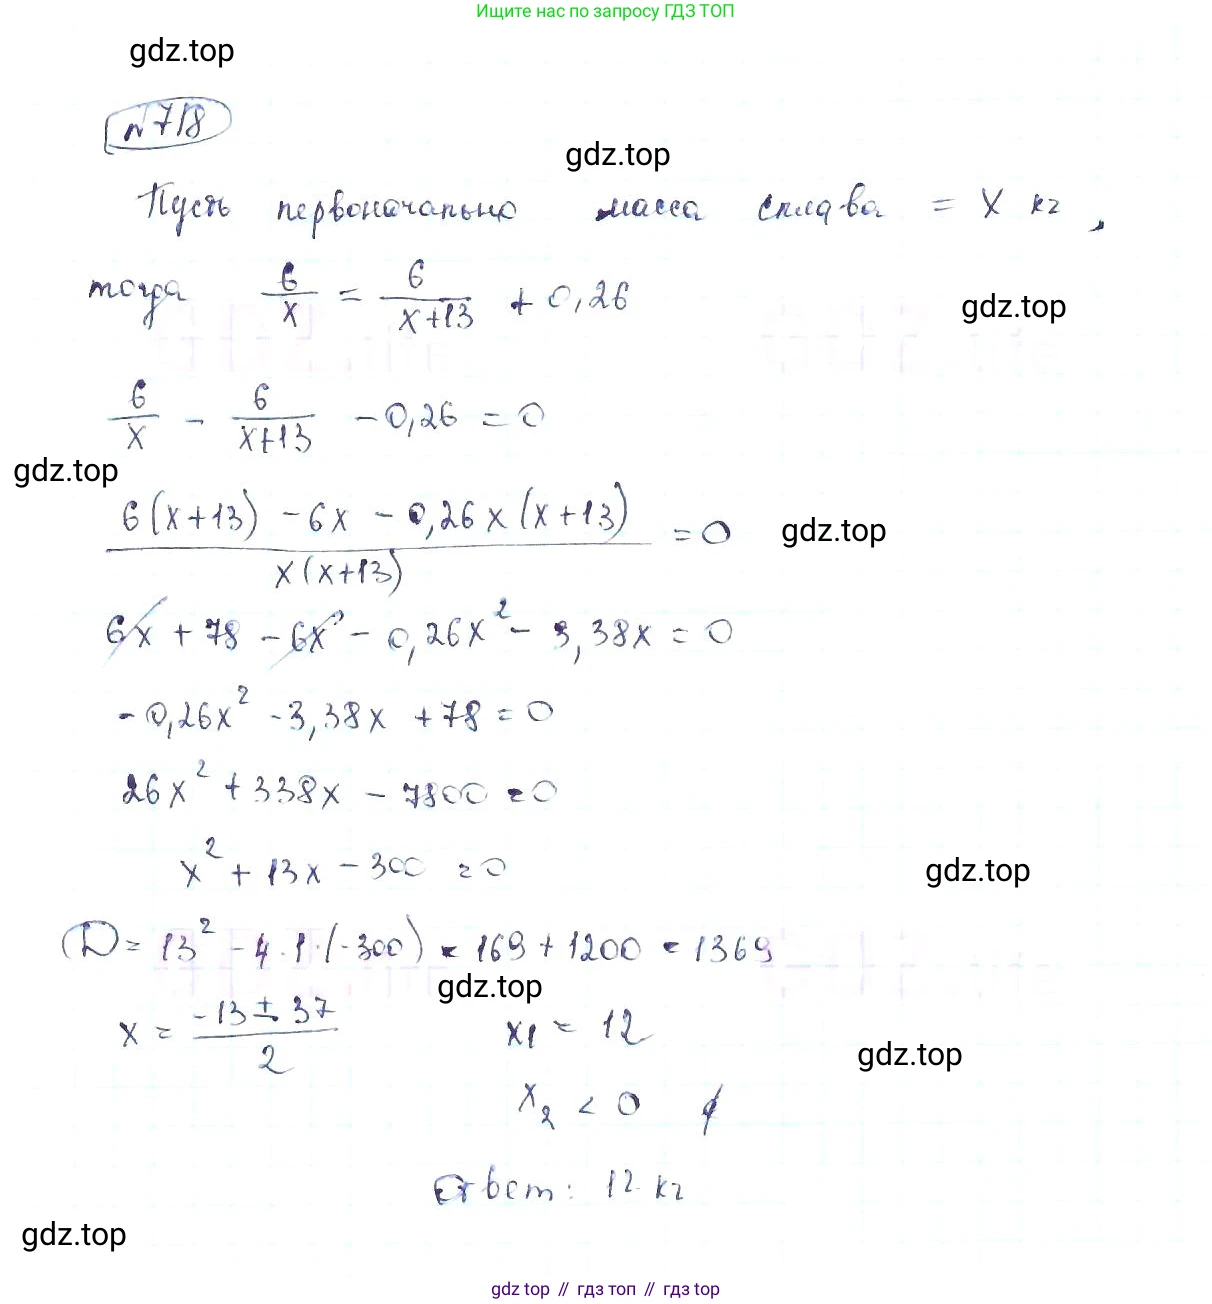 Ищите нас по запросу ГДЗ ТОП
gdz.top
№718
gdz.top
Пусть первоначально масса сплава = x кг,
тогда 6/x = 6/(x+13) + 0,26
gdz.top
6/x - 6/(x+13) - 0,26 = 0
gdz.top
(6(x+13) - 6x - 0,26x(x+13))/(x(x+13)) = 0
gdz.top
6x + 78 - 6x - 0,26x² - 3,38x = 0
-0,26x² - 3,38x + 78 = 0
26x² + 338x - 7800 = 0
x² + 13x - 300 = 0
gdz.top
D = 13² - 4·1·(-300) = 169 + 1200 = 1369
gdz.top
x = (-13 ± 37)/2 x₁ = 12
gdz.top
x₂ < 0
Ответ: 12 кг
gdz.top
gdz top // гдз топ // гдз top